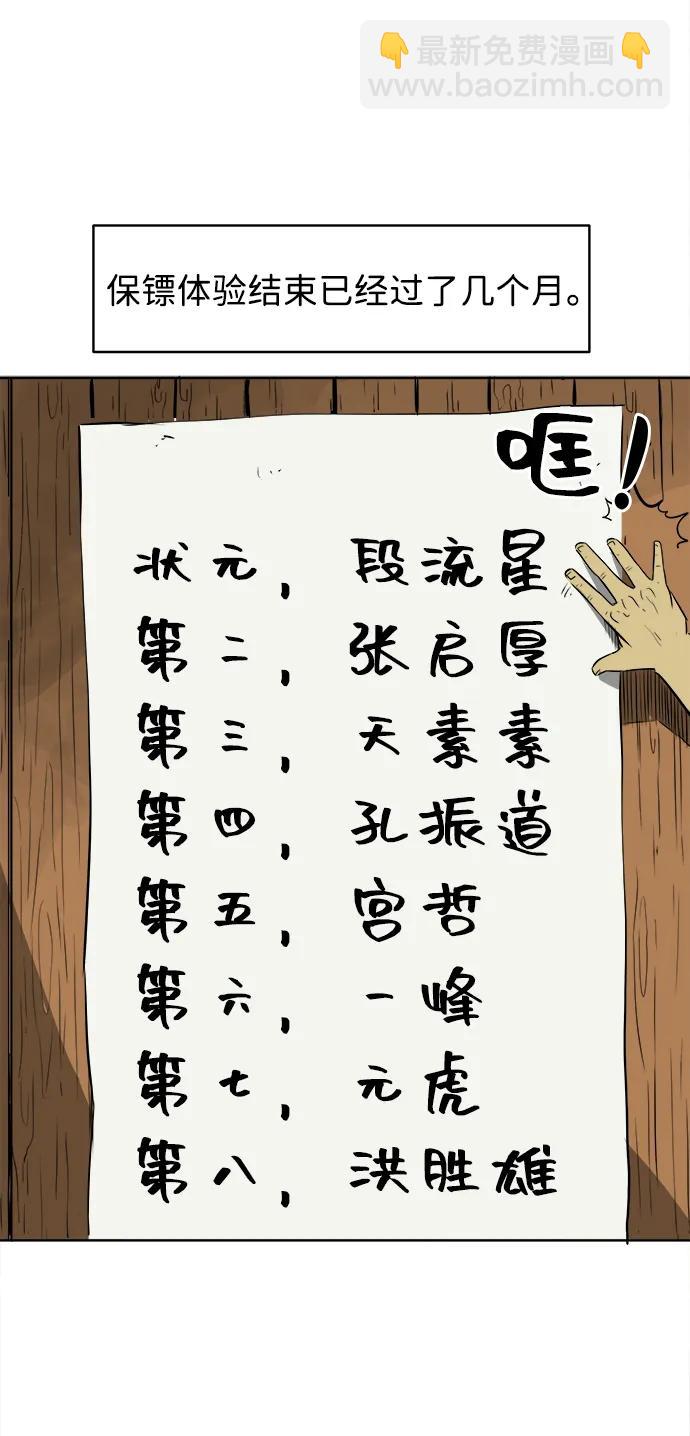 👇最新免费漫画👇
www.baozimh.com
保镖体验结束已经过了几个月。
哐！
状元，段流星
第二，张启厚
第三，天素素
第四，孔振道
第五，宫哲
第六，一峰
第七，元虎
第八，洪胜雄